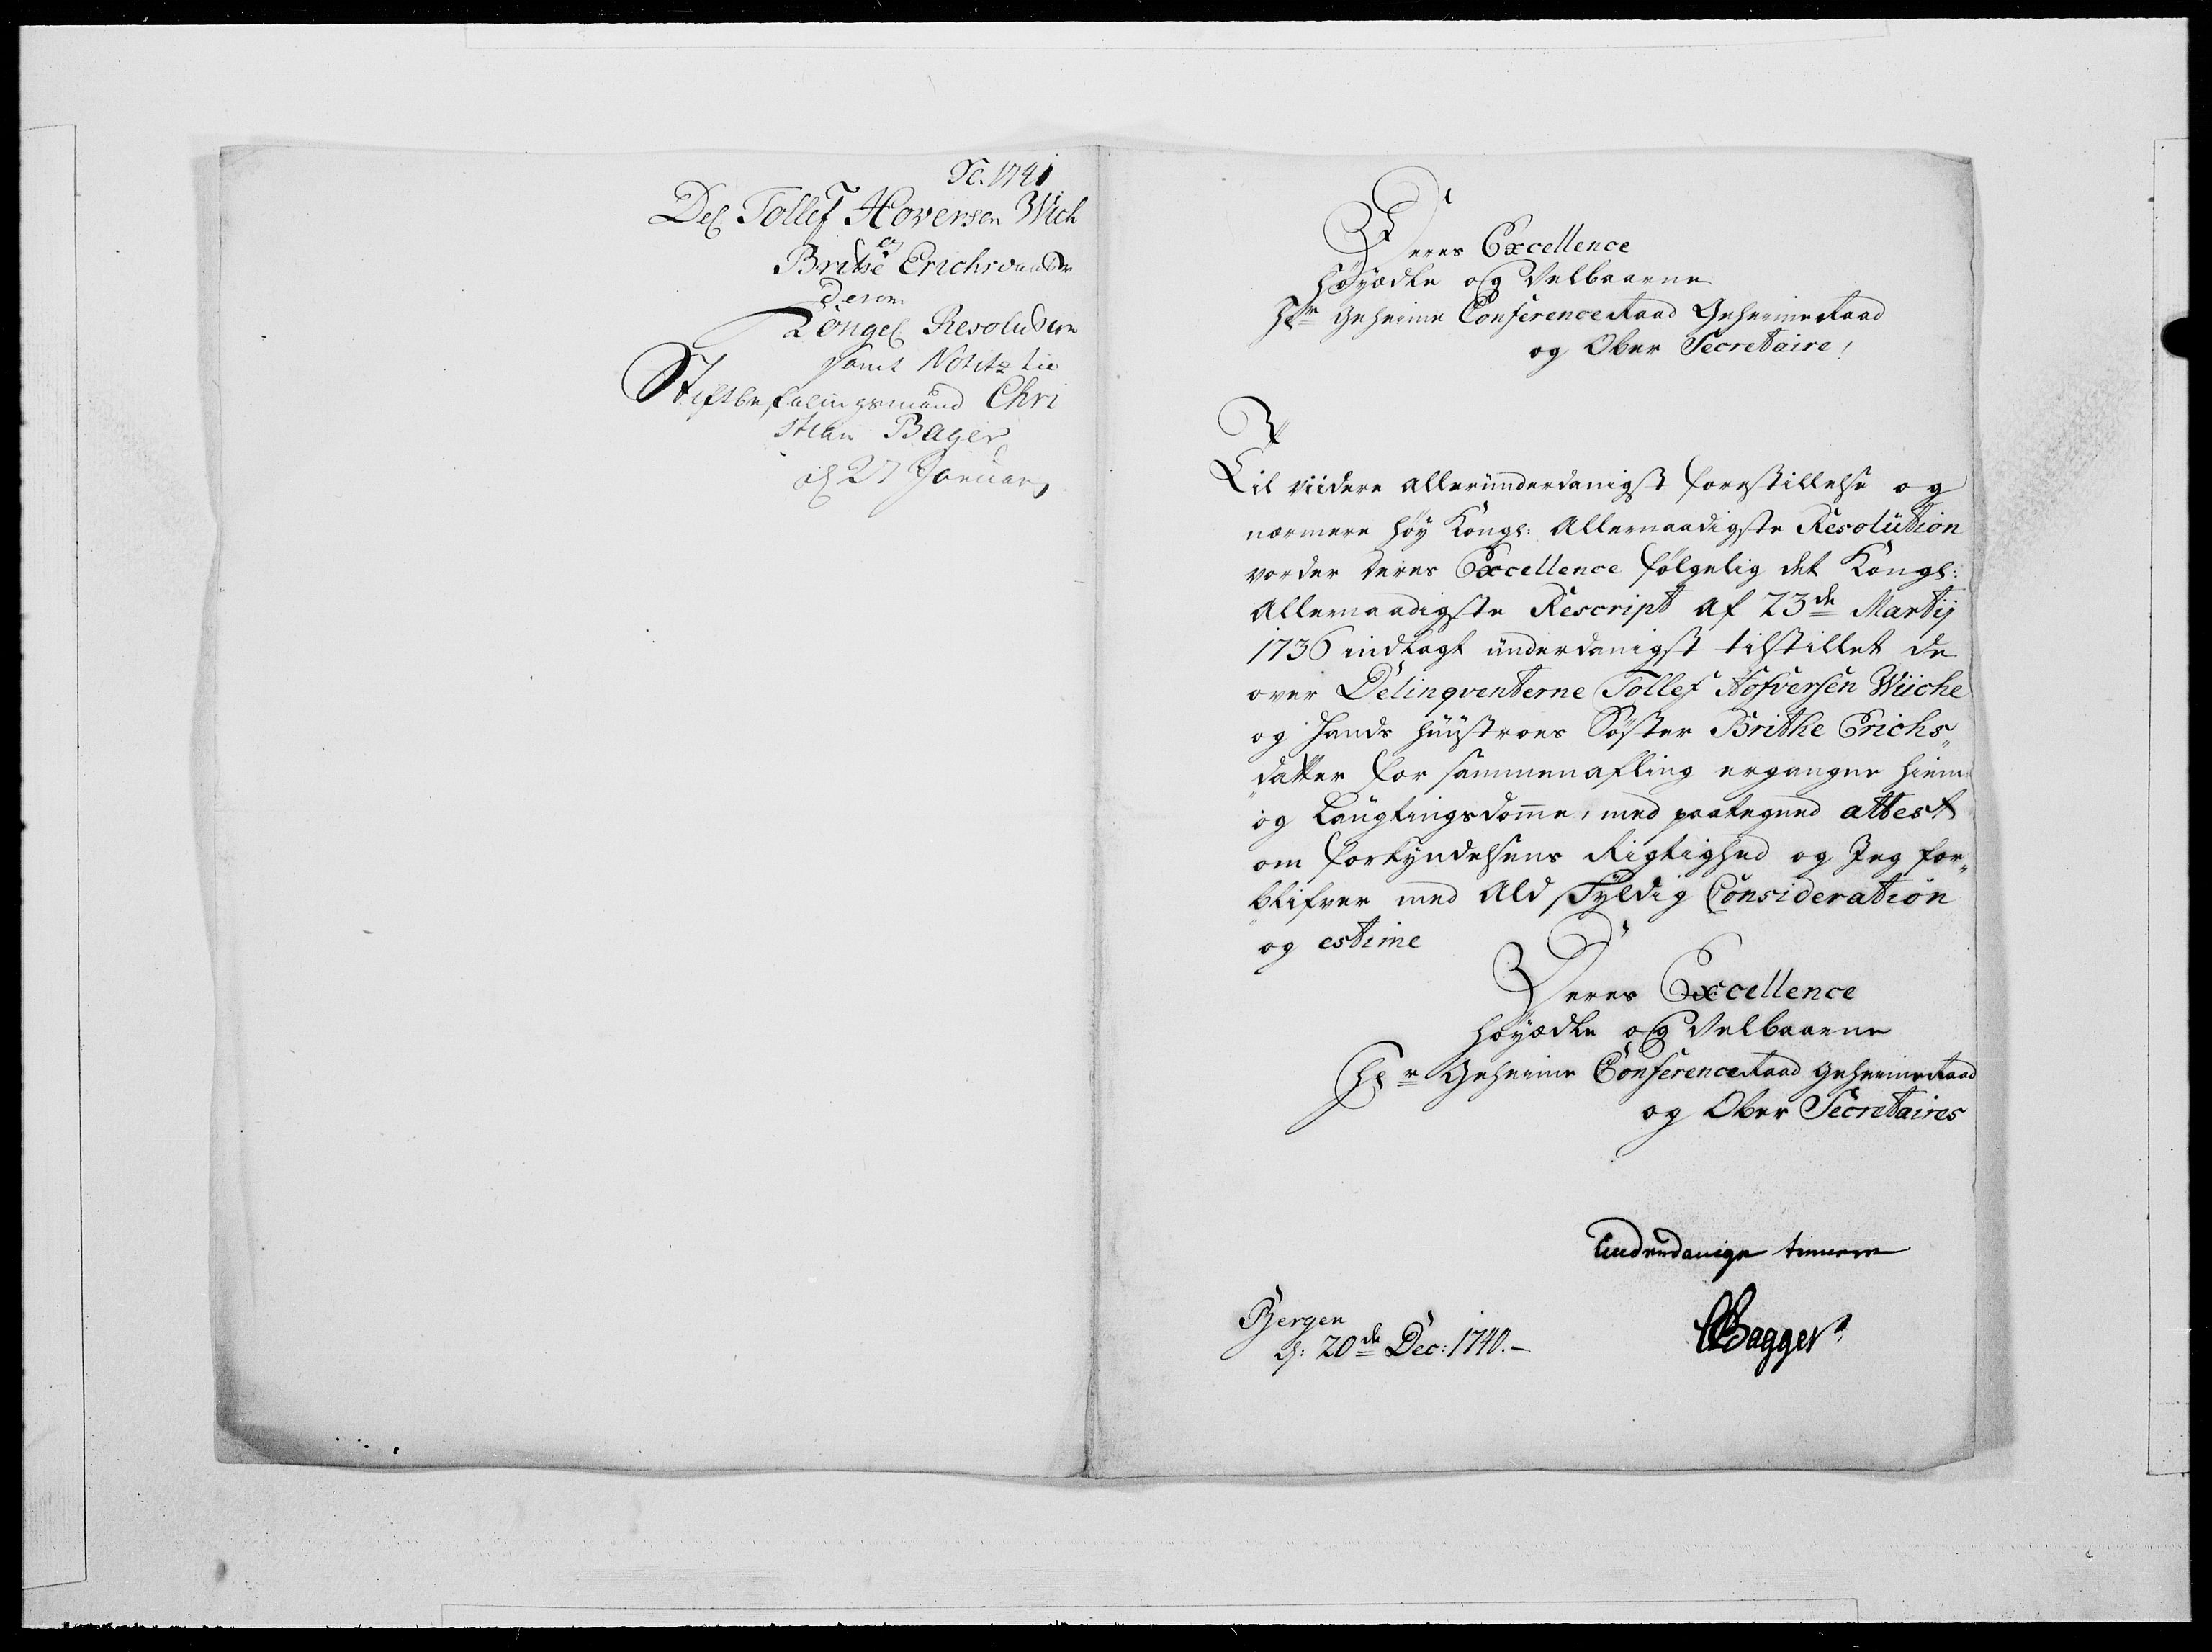 1741
Del Tollef Hoversen Wich
og
Brithe Erichsdatter
Deres
Kongel Resolution
samt Notitz til
Stiftbefalingsmand Chri
stian Bager
d 27 Januar
Deres Excellence
Høyædle og Velbaarne
Hr Geheime Conference Raad Geheime Raad
og Ober Secretaire!
Til viidere allerunderdanigst forestillelse og
nærmere høy Kongl: Allernaadigste Resolution
vorder deres Excellence følgelig det Kongl:
Allernaadigste Rescript af 23de Martij
1736 indlagt underdanigst tilstillet de
over Delinqventerne Tollef Hofversen Wiiche
og hands huustroes Søster Brithe Erichs„
datter for sammenafling ergangne hiem„
og Laugtingsdomme, med paategned attest
om forkyndelsens Rigtighed og Jeg for„
blifver med Ald skyldig Consideration
og estime
Deres Excellence
Høyædle og Velbaarne
Hr Geheime Conference Raad Geheime Raad
og Ober Secretaires
Underdanige tiennere
Bergen
d: 20de Dec: 1740.–
CBagger